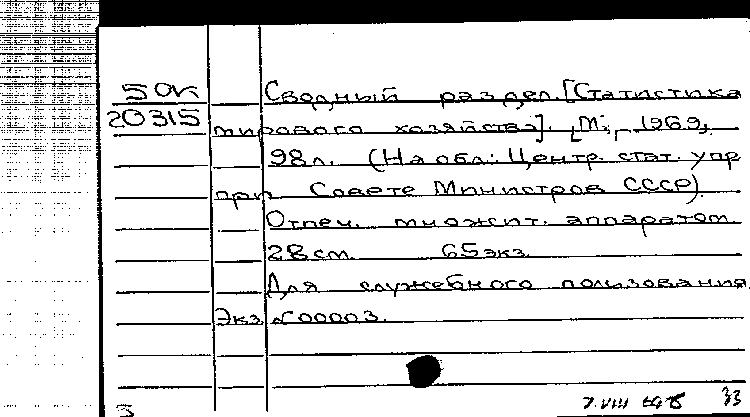 50К
20315
Сводный раздел. [Статистика
мирового хозяйства]. [М., 1969,
98л. (На обл.: Центр. стат. упр
при Совете Министров СССР)
Отпеч. множит. аппаратом
28см. 65экз.
Для служебного пользования
Экз. №00003.
7.VIII
33
3